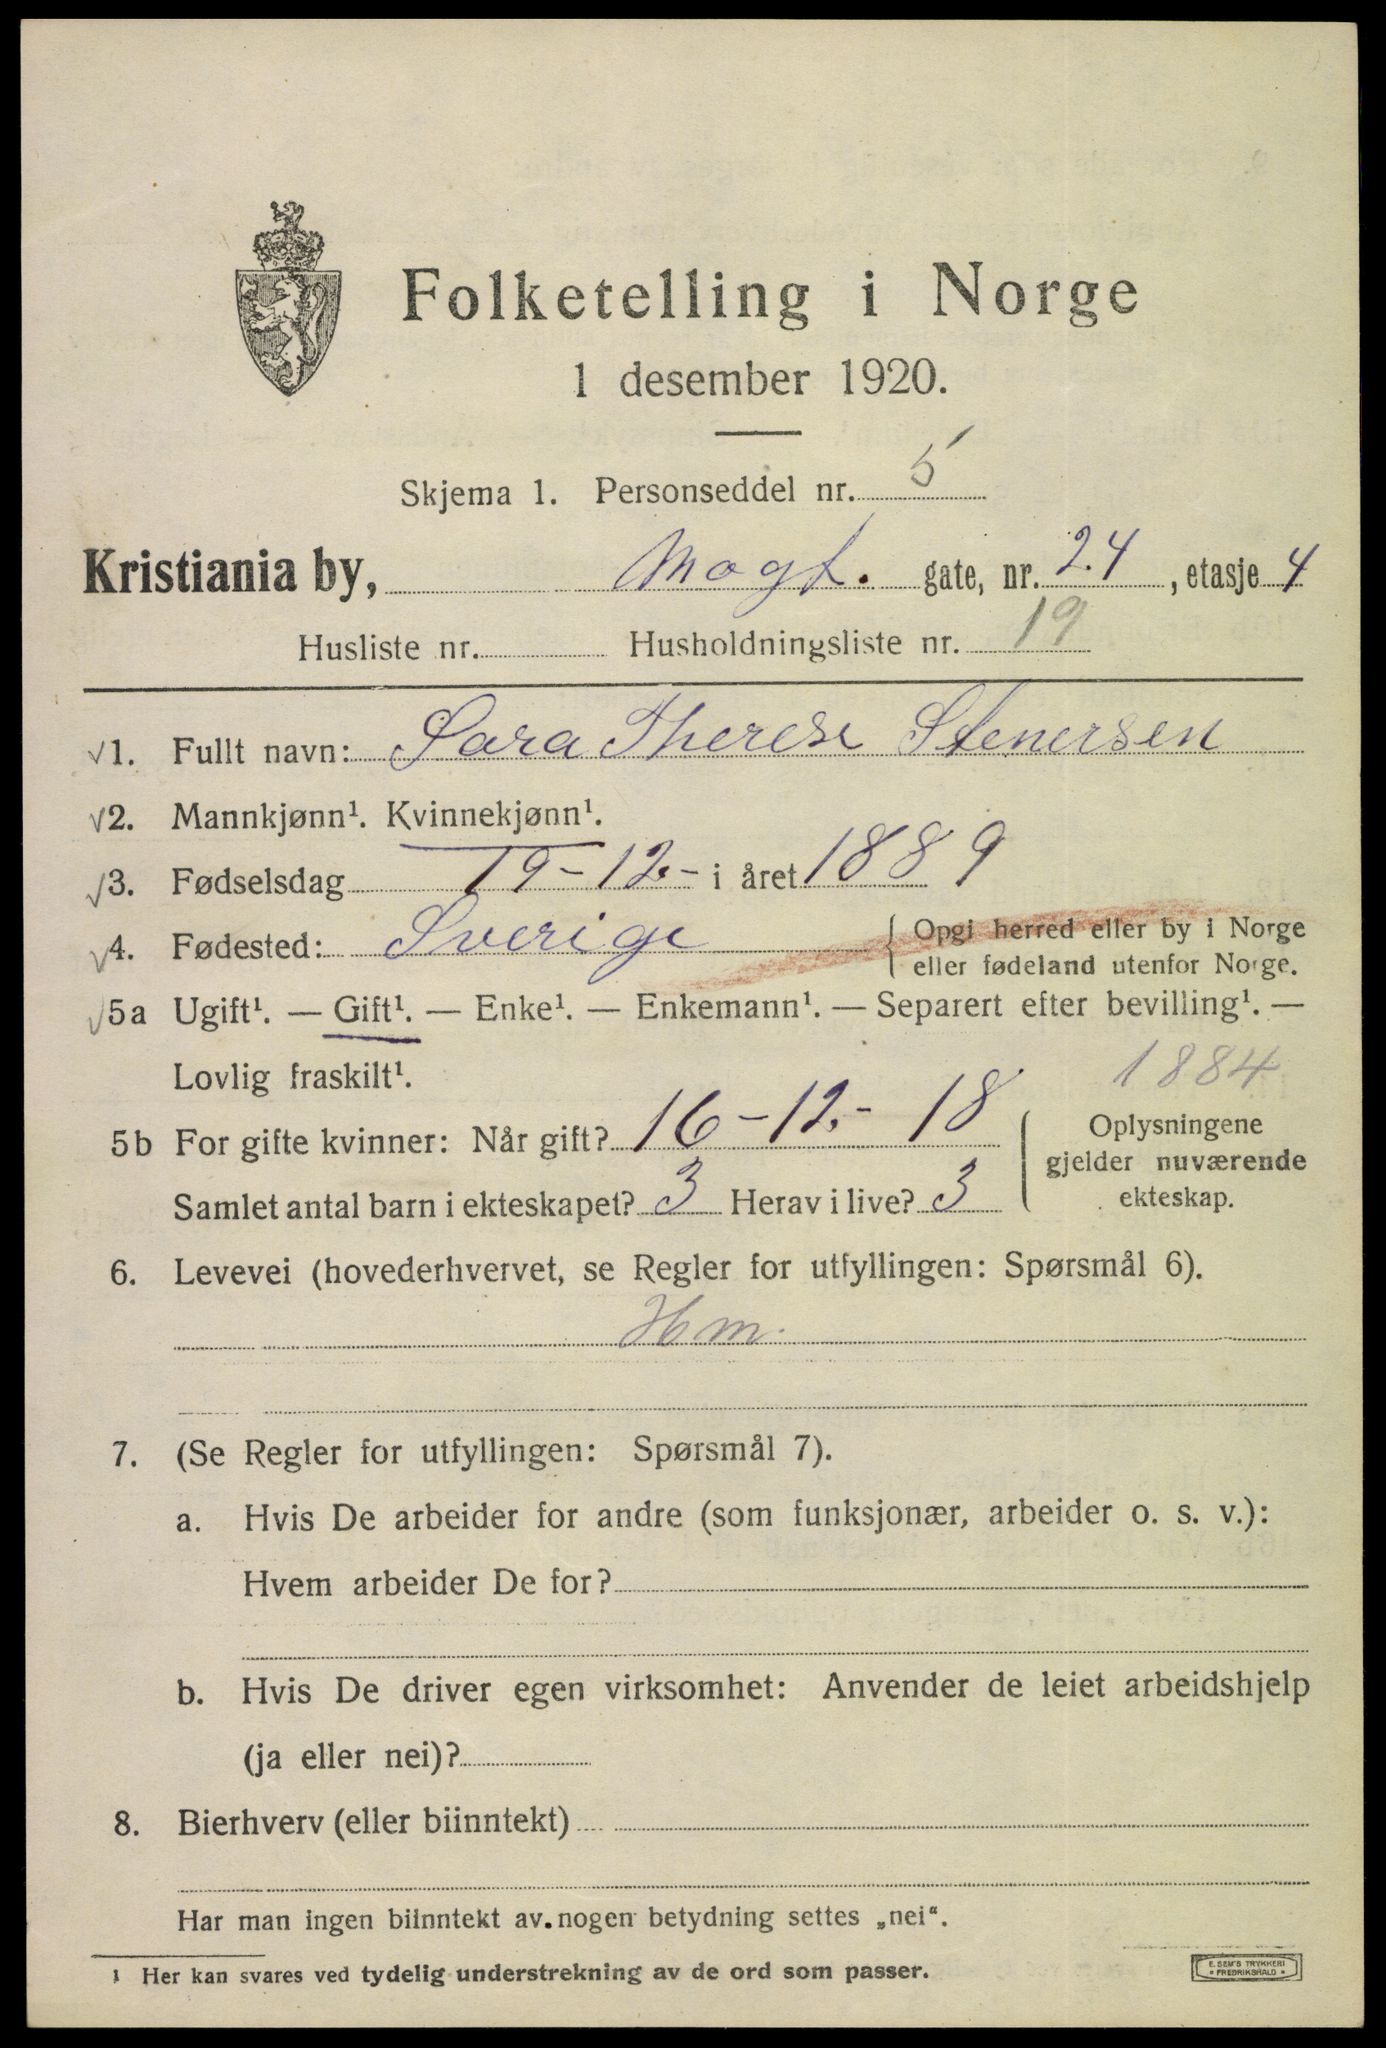 Folketelling i Norge
1 desember 1920.
Skjema 1. Personseddel nr. 5
Kristiania by, Mogt. gate, nr. 24, etasje 4
Husliste nr. Husholdningsliste nr. 19
√1. Fullt navn: Sara Therese Stenersen
√2. Mannkjønn¹. Kvinnekjønn¹.
√3. Fødselsdag 19-12.- i året 1889
√4. Fødested: Sverige { Opgi herred eller by i Norge
eller fødeland utenfor Norge.
√5a Ugift¹. — Gift¹. — Enke¹. — Enkemann¹. — Separert efter bevilling¹. —
Lovlig fraskilt¹. 1884
5b For gifte kvinner: Når gift? 16-12.- 18
Samlet antal barn i ekteskapet? 3 Herav i live? 3
Oplysningene
gjelder nuværende
ekteskap.
6. Levevei (hovederhvervet, se Regler for utfyllingen: Spørsmål 6).
Hm.
7. (Se Regler for utfyllingen: Spørsmål 7).
a. Hvis De arbeider for andre (som funksjonær, arbeider o. s. v.):
Hvem arbeider De for?
b. Hvis De driver egen virksomhet: Anvender de leiet arbeidshjelp
(ja eller nei)?
8. Bierhverv (eller biinntekt)
Har man ingen biinntekt av nogen betydning settes „nei“.
¹ Her kan svares ved tydelig understrekning av de ord som passer.
E. SEM'S TRYKKERI
• FREDRIKSHALD •